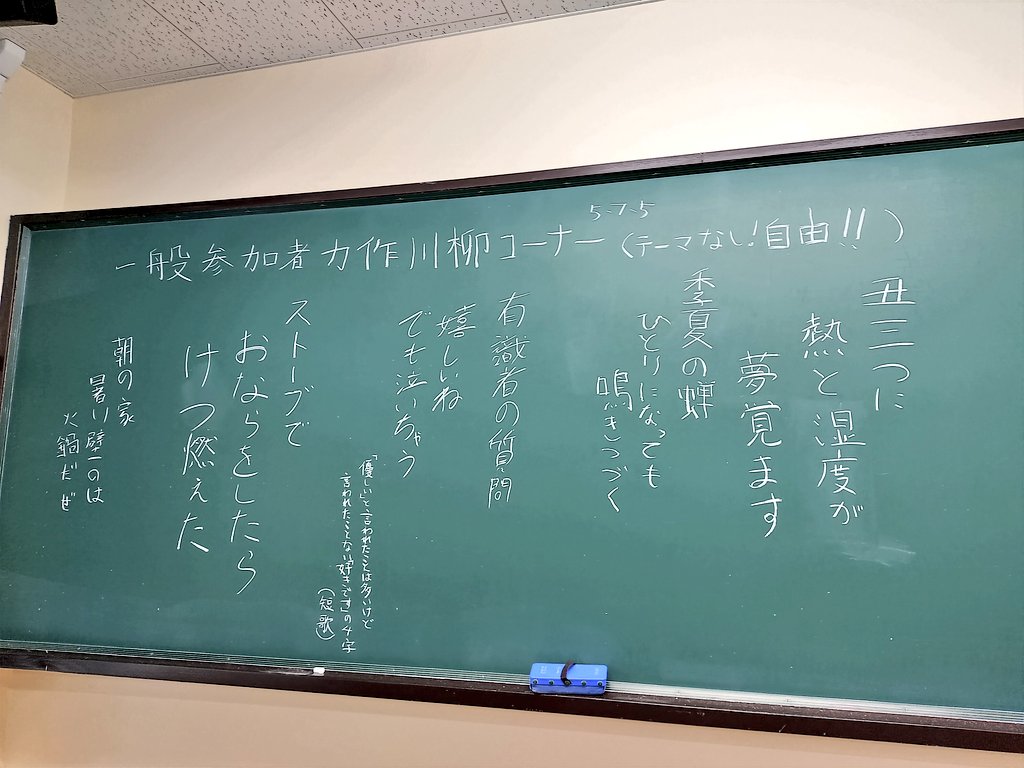 5-7-5
一般参加者力作川柳コーナー(テーマなし!自由!!)
丑三つに
熱と湿度が
夢覚ます
季夏の蝉
ひとりになっても
鳴きつづく
有識者の質問
嬉しいね
でも泣いちゃう
「優しい」と、言われたことは多いけど
言われたことない「好きです」の4字
(短歌)
ストーブで
おならをしたら
けつ燃えた
朝の家
暑い のは
火鍋だぜ